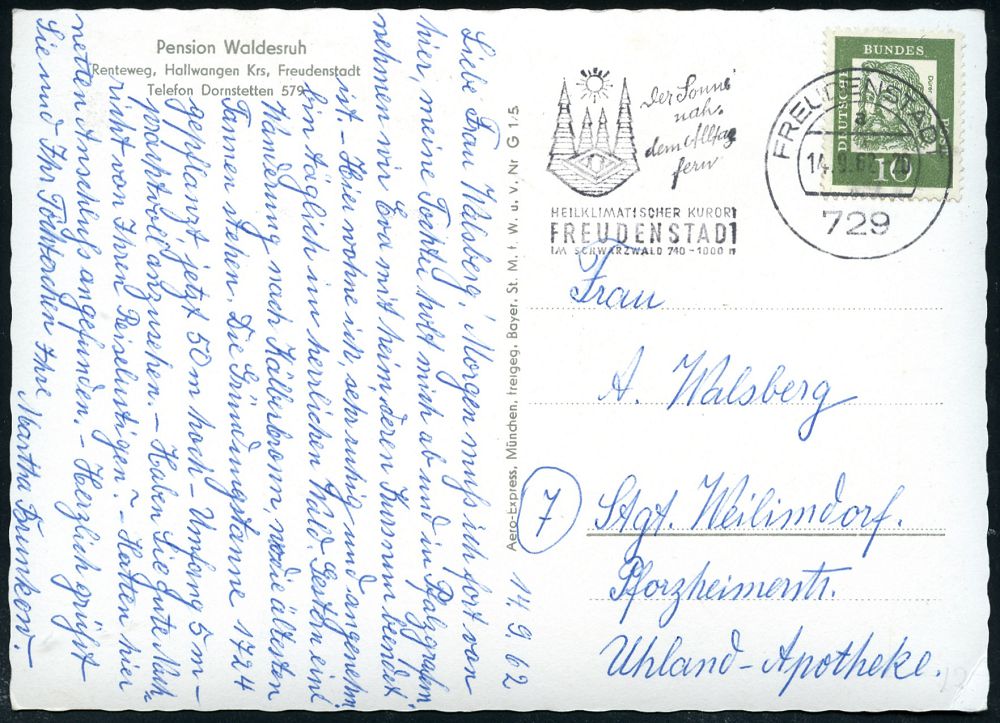 Pension Waldesruh
Renteweg, Hallwangen Krs, Freudenstadt
Telefon Dornstetten 579
14. 9. 62
Liebe Frau Walsberg! Morgen muß ich fort von
hier, meine Tochter holt mich ab und in Pfalzgrafen
nehmen wir Eva mit heim, deren Kursnun beendet
ist. – Hier wohne ich, sehr ruhig und angenehm
bin täglich im herrlichen Wald. Gestern eine
Wanderung nach Kälberbronn, wo die ältesten
Tannen stehen. Die Gründungstanne 1724
gepflanzt jetzt 50 m hoch – Umfang 5 m –
prachtvoll anzusehen. – Haben Sie gute Nach-
richt von Ihren Reiselustigen? – Hatten hier
netten Anschluß angefunden. – Herzlich grüßt
Sie und Ihr Töchterchen Ihre Martha Dunkow. –
Aero-Express, München, freigeg. Bayer. St. M. f. W. u. v. Nr G 1/5
Der Sonne
nah,
dem Alltag
fern
HEILKLIMATISCHER KURORT
FREUDENSTADT
IM SCHWARZWALD 740-1000 m
FREUDENSTADT
a
14.9.62
729
DEUTSCHE
BUNDES
POST
Dürer
10
Frau
A. Walsberg
7
Stgt. Weilimdorf.
Pforzheimerstr.
Uhland-Apotheke.